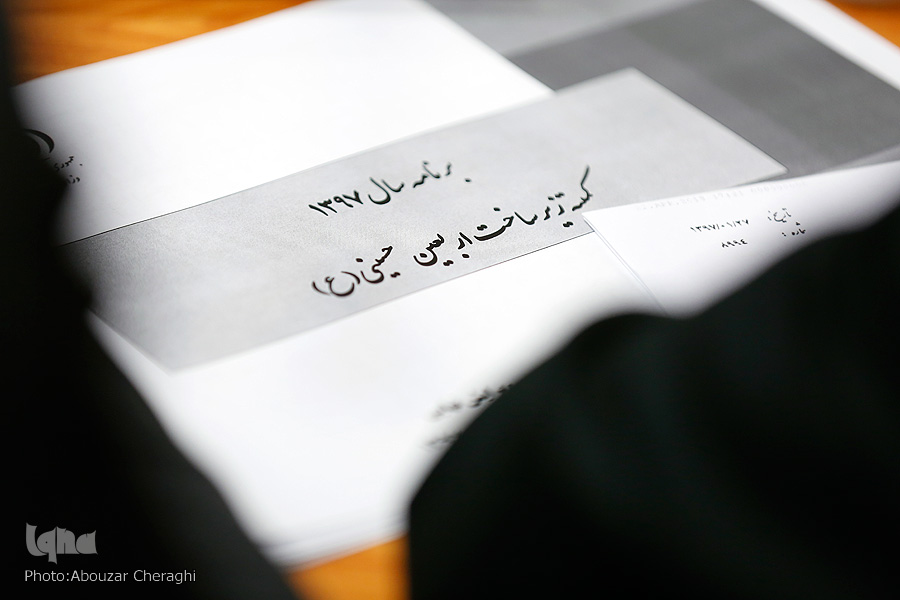 برنامه سال ۱۳۹۷
کمیته زیرساخت اربعین حسینی (ع)
تاریخ: ۱۳۹۷/۰۱/۲۷
شماره: ۸۹۹۴
iqna
Photo:Abouzar Cheraghi